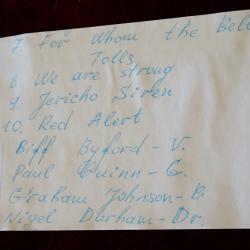 7. For Whom the Bell
Tolls
8 We are strong
9 Jericho Siren
10. Red Alert
Biff Byford - V.
Paul Quinn - G.
Graham Johnson - B
Nigel Durham - Dr.